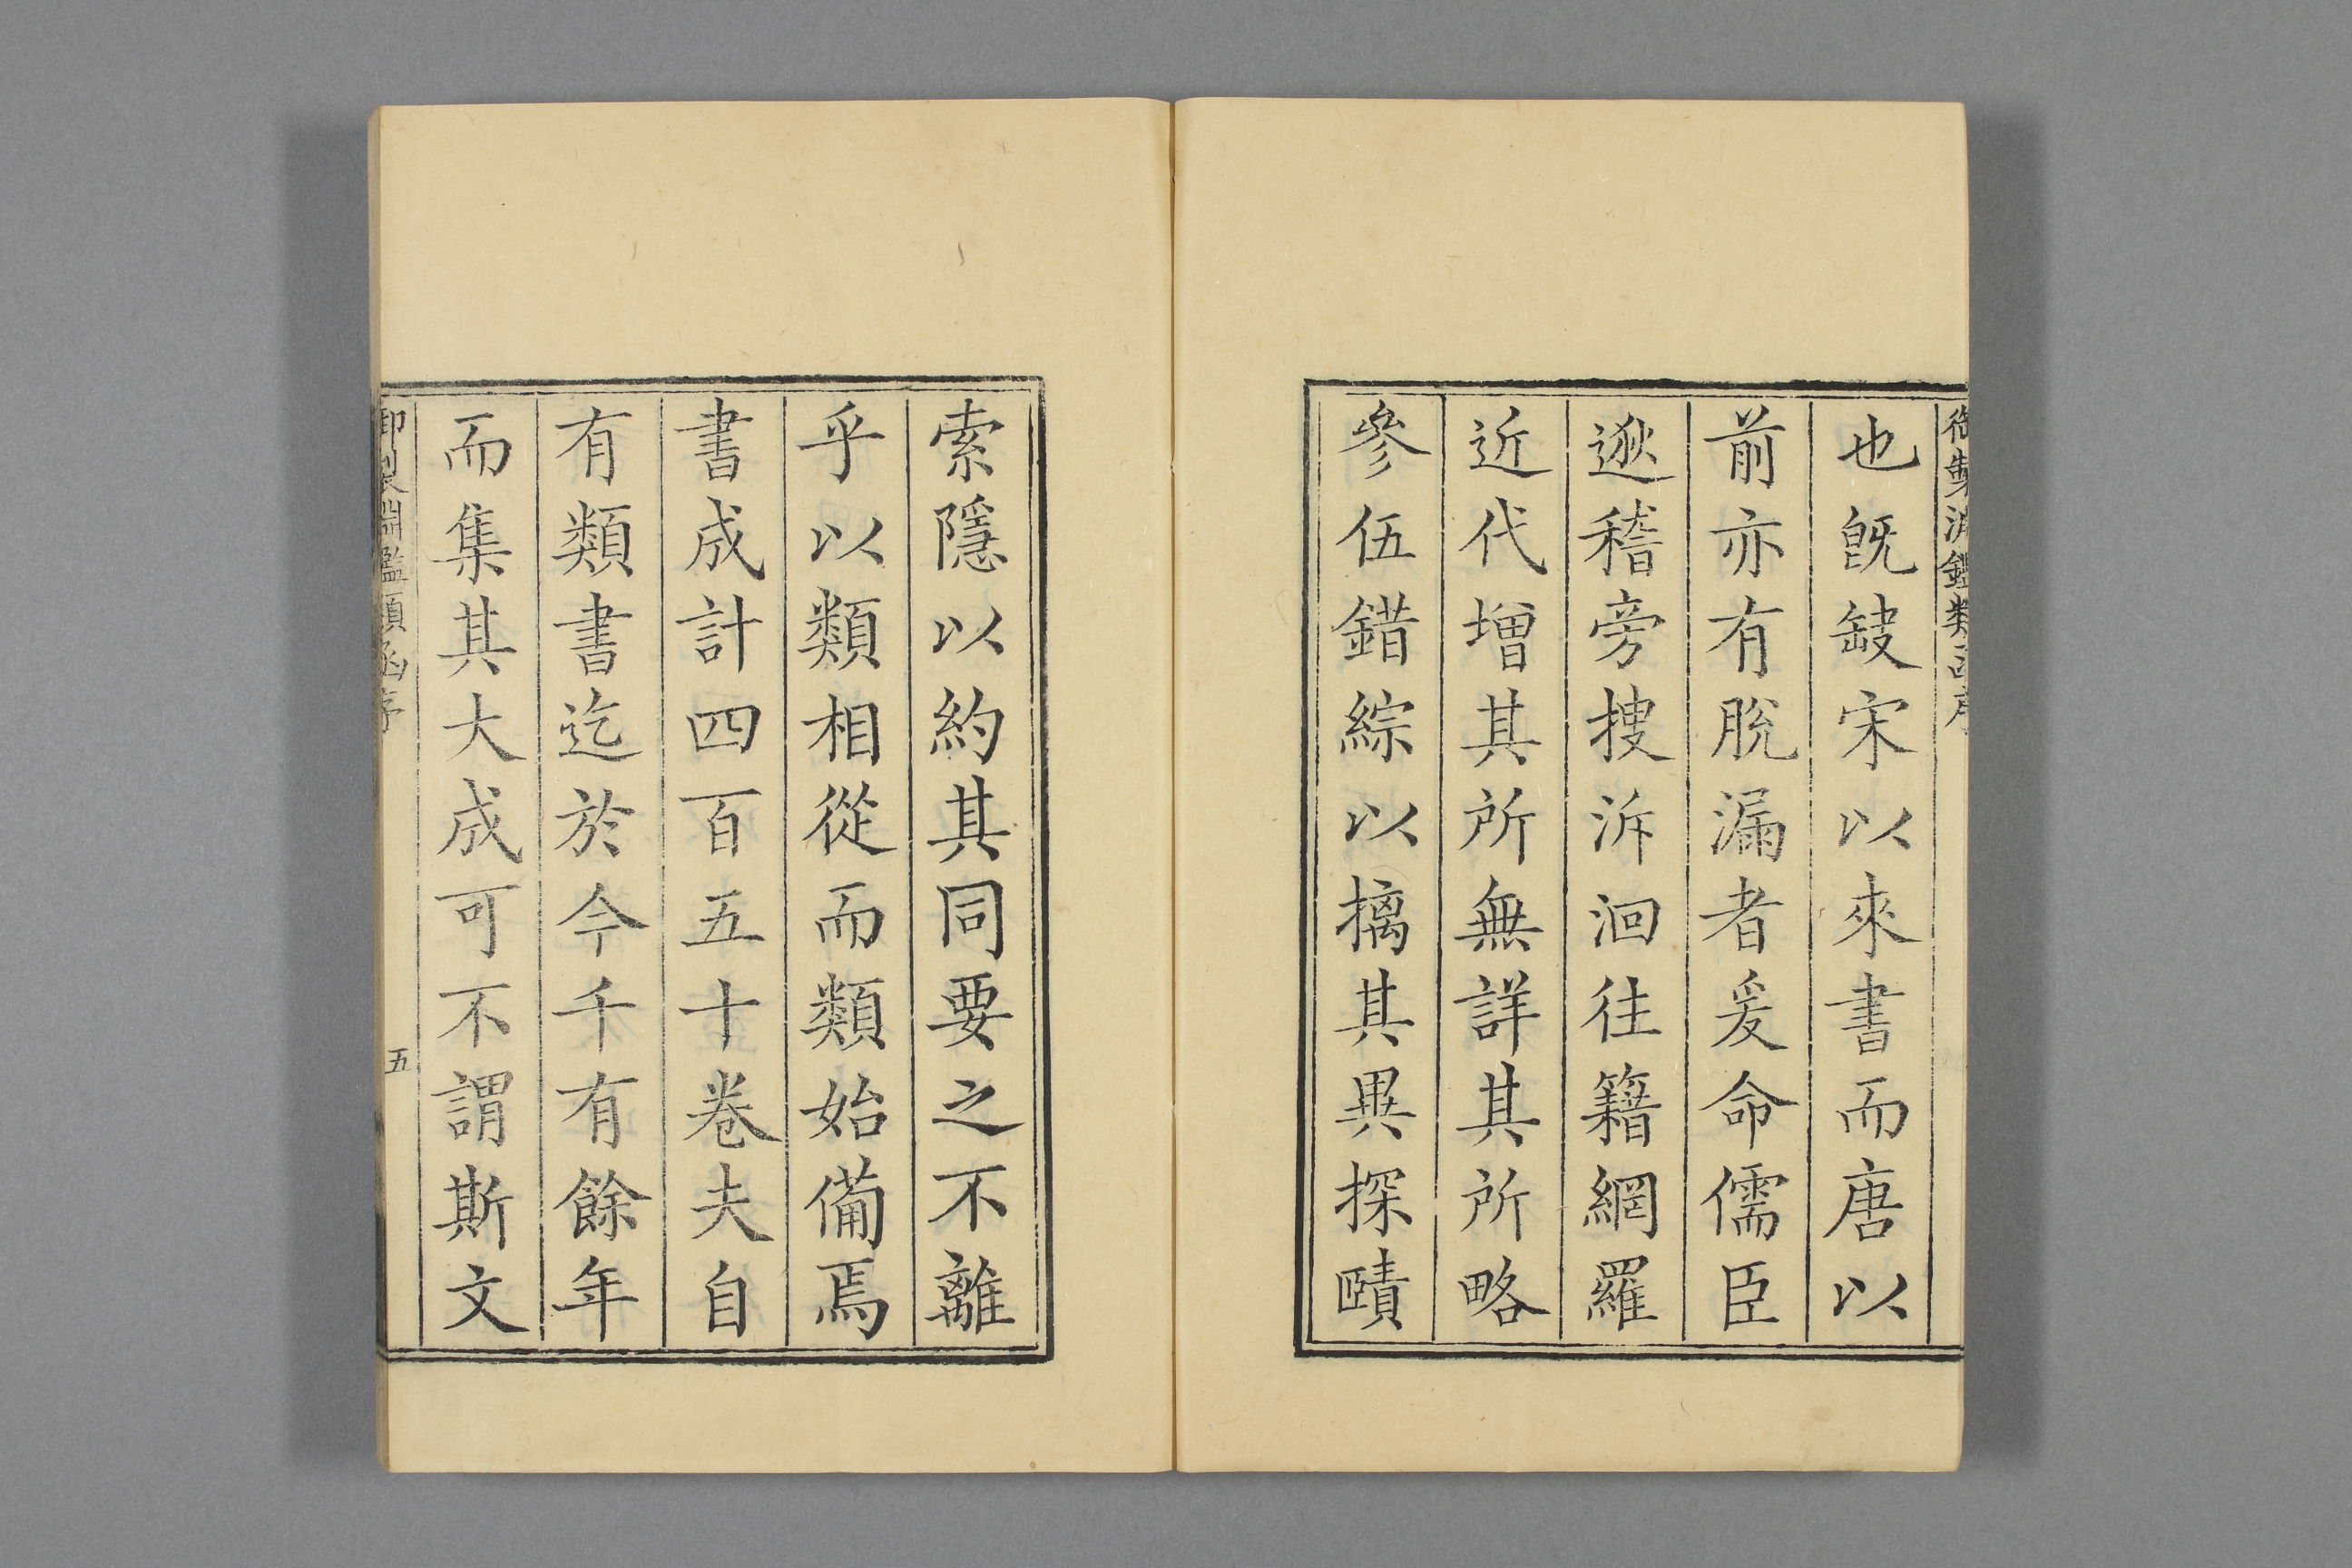 御製淵鑑類函序
也旣缺宋以來書而唐以
前亦有脫漏者爰命儒臣
逖稽旁搜泝洄往籍網羅
近代增其所無詳其所略
參伍錯綜以摛其異探賾
索隱以約其同要之不離
乎以類相從而類始備焉
書成計四百五十卷夫自
有類書迄於今千有餘年
而集其大成可不謂斯文
御製淵鑑類函序
五